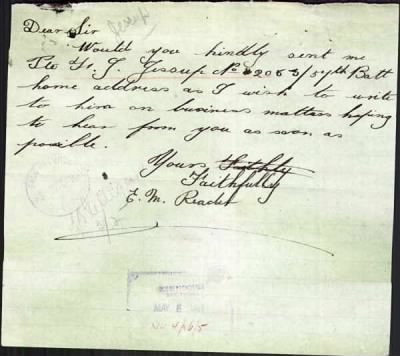 Dear Sir
Jessup
Would you kindly sent me
Pte G. J. Jessup No 2063/57th Batt
home address as I wish to write
to him on business matters hoping
to hear from you as soon as
possible.
Yours
Faithfully
E. M. Reader
MAY